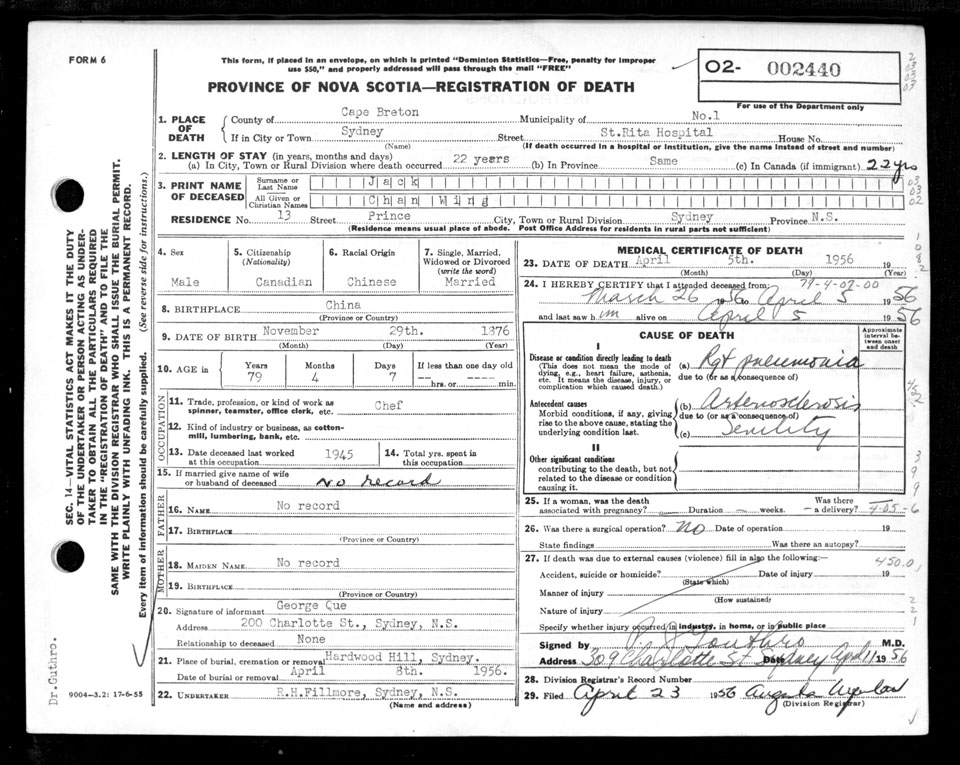 FORM 6
This form, if placed in an envelope, on which is printed "Dominion Statistics—Free, penalty for improper
use $50," and properly addressed will pass through the mail "FREE"
02- 002440
For use of the Department only
PROVINCE OF NOVA SCOTIA—REGISTRATION OF DEATH
1. PLACE OF DEATH
County of Cape Breton Municipality of No.1
If in City or Town Sydney Street St.Rita Hospital House No.
(Name) (If death occurred in a hospital or institution, give the name instead of street and number)
2. LENGTH OF STAY (in years, months and days)
(a) In City, Town or Rural Division where death occurred 22 years (b) In Province Same (c) In Canada (if immigrant) 22 yrs
3. PRINT NAME OF DECEASED
Surname or Last Name Jack
All Given or Christian Names Chan Wing
RESIDENCE No. 13 Street Prince City, Town or Rural Division Sydney Province N.S.
(Residence means usual place of abode. Post Office Address for residents in rural parts not sufficient)
4. Sex
Male
5. Citizenship
(Nationality)
Canadian
6. Racial Origin
Chinese
7. Single, Married,
Widowed or Divorced
(write the word)
Married
8. BIRTHPLACE China
(Province or Country)
9. DATE OF BIRTH November 29th. 1876
(Month) (Day) (Year)
10. AGE in
Years Months Days If less than one day
79 4 7 hrs. or min.
OCCUPATION
11. Trade, profession, or kind of work as
spinner, teamster, office clerk, etc. Chef
12. Kind of industry or business, as cotton-
mill, lumbering, bank, etc.
13. Date deceased last worked
at this occupation 1945
14. Total yrs. spent in
this occupation
15. If married give name of wife
or husband of deceased No record
FATHER
16. NAME No record
17. BIRTHPLACE
(Province or Country)
MOTHER
18. MAIDEN NAME No record
19. BIRTHPLACE
(Province or Country)
20. Signature of informant George Que
Address 200 Charlotte St., Sydney, N.S.
Relationship to deceased None
21. Place of burial, cremation or removal Hardwood Hill, Sydney.
Date of burial or removal April 8th. 1956.
22. UNDERTAKER R.H.Fillmore, Sydney, N.S.
(Name and address)
MEDICAL CERTIFICATE OF DEATH
23. DATE OF DEATH April 5th. 1956 19
(Month) (Day) (Year)
79-4-07-00
24. I HEREBY CERTIFY that I attended deceased from:
March 26 1956 to April 5 1956
and last saw him alive on April 5 1956
CAUSE OF DEATH
Approximate
interval be-
tween onset
and death
I
Disease or condition directly leading to death
(This does not mean the mode of
dying, e.g., heart failure, asthenia,
etc. It means the disease, injury, or
complication which caused death.)
(a) Rgt pneumonia
due to (or as a consequence of)
Antecedent causes
Morbid conditions, if any, giving
rise to the above cause, stating the
underlying condition last.
(b) Arteriosclerosis
due to (or as a consequence of)
(c) Senility
II
Other significant conditions
contributing to the death, but not
related to the disease or condition
causing it.
25. If a woman, was the death
associated with pregnancy? Duration weeks. Was there
a delivery?
26. Was there a surgical operation? No Date of operation 19
State findings Was there an autopsy?
27. If death was due to external causes (violence) fill in also the following:— 450.0
Accident, suicide or homicide? Date of injury 19
(State which)
Manner of injury
(How sustained)
Nature of injury
Specify whether injury occurred in industry, in home, or in public place
Signed by M.D.
Address 309 Charlotte St Sydney Date April 11 1956
28. Division Registrar's Record Number
29. Filed April 23 1956
(Division Registrar)
SEC. 14—VITAL STATISTICS ACT MAKES IT THE DUTY
OF THE UNDERTAKER OR PERSON ACTING AS UNDER-
TAKER TO OBTAIN ALL THE PARTICULARS REQUIRED
IN THE "REGISTRATION OF DEATH" AND TO FILE THE
SAME WITH THE DIVISION REGISTRAR WHO SHALL ISSUE THE BURIAL PERMIT.
WRITE PLAINLY WITH UNFADING INK. THIS IS A PERMANENT RECORD.
Every item of information should be carefully supplied. (See reverse side for instructions.)
Dr. Guthro.
9004-3.2: 17-6-55